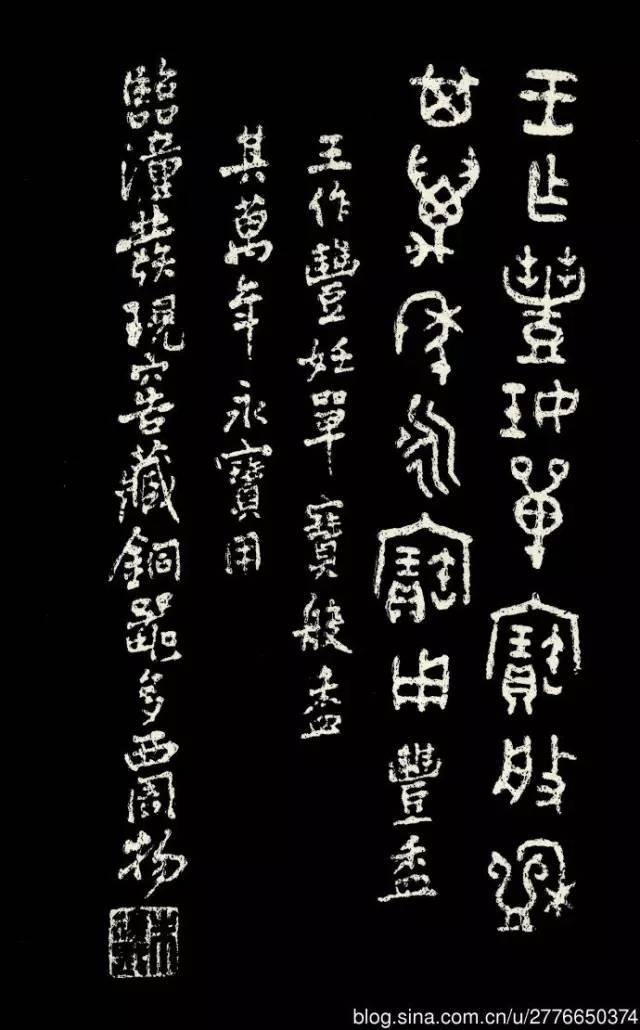 王乍豐妊單寶般盉
其萬年永寶用豐盉
王作豐妊單寶般盉
其萬年永寶用
臨潼發現窖藏銅器多西周物
blog.sina.com.cn/u/2776650374